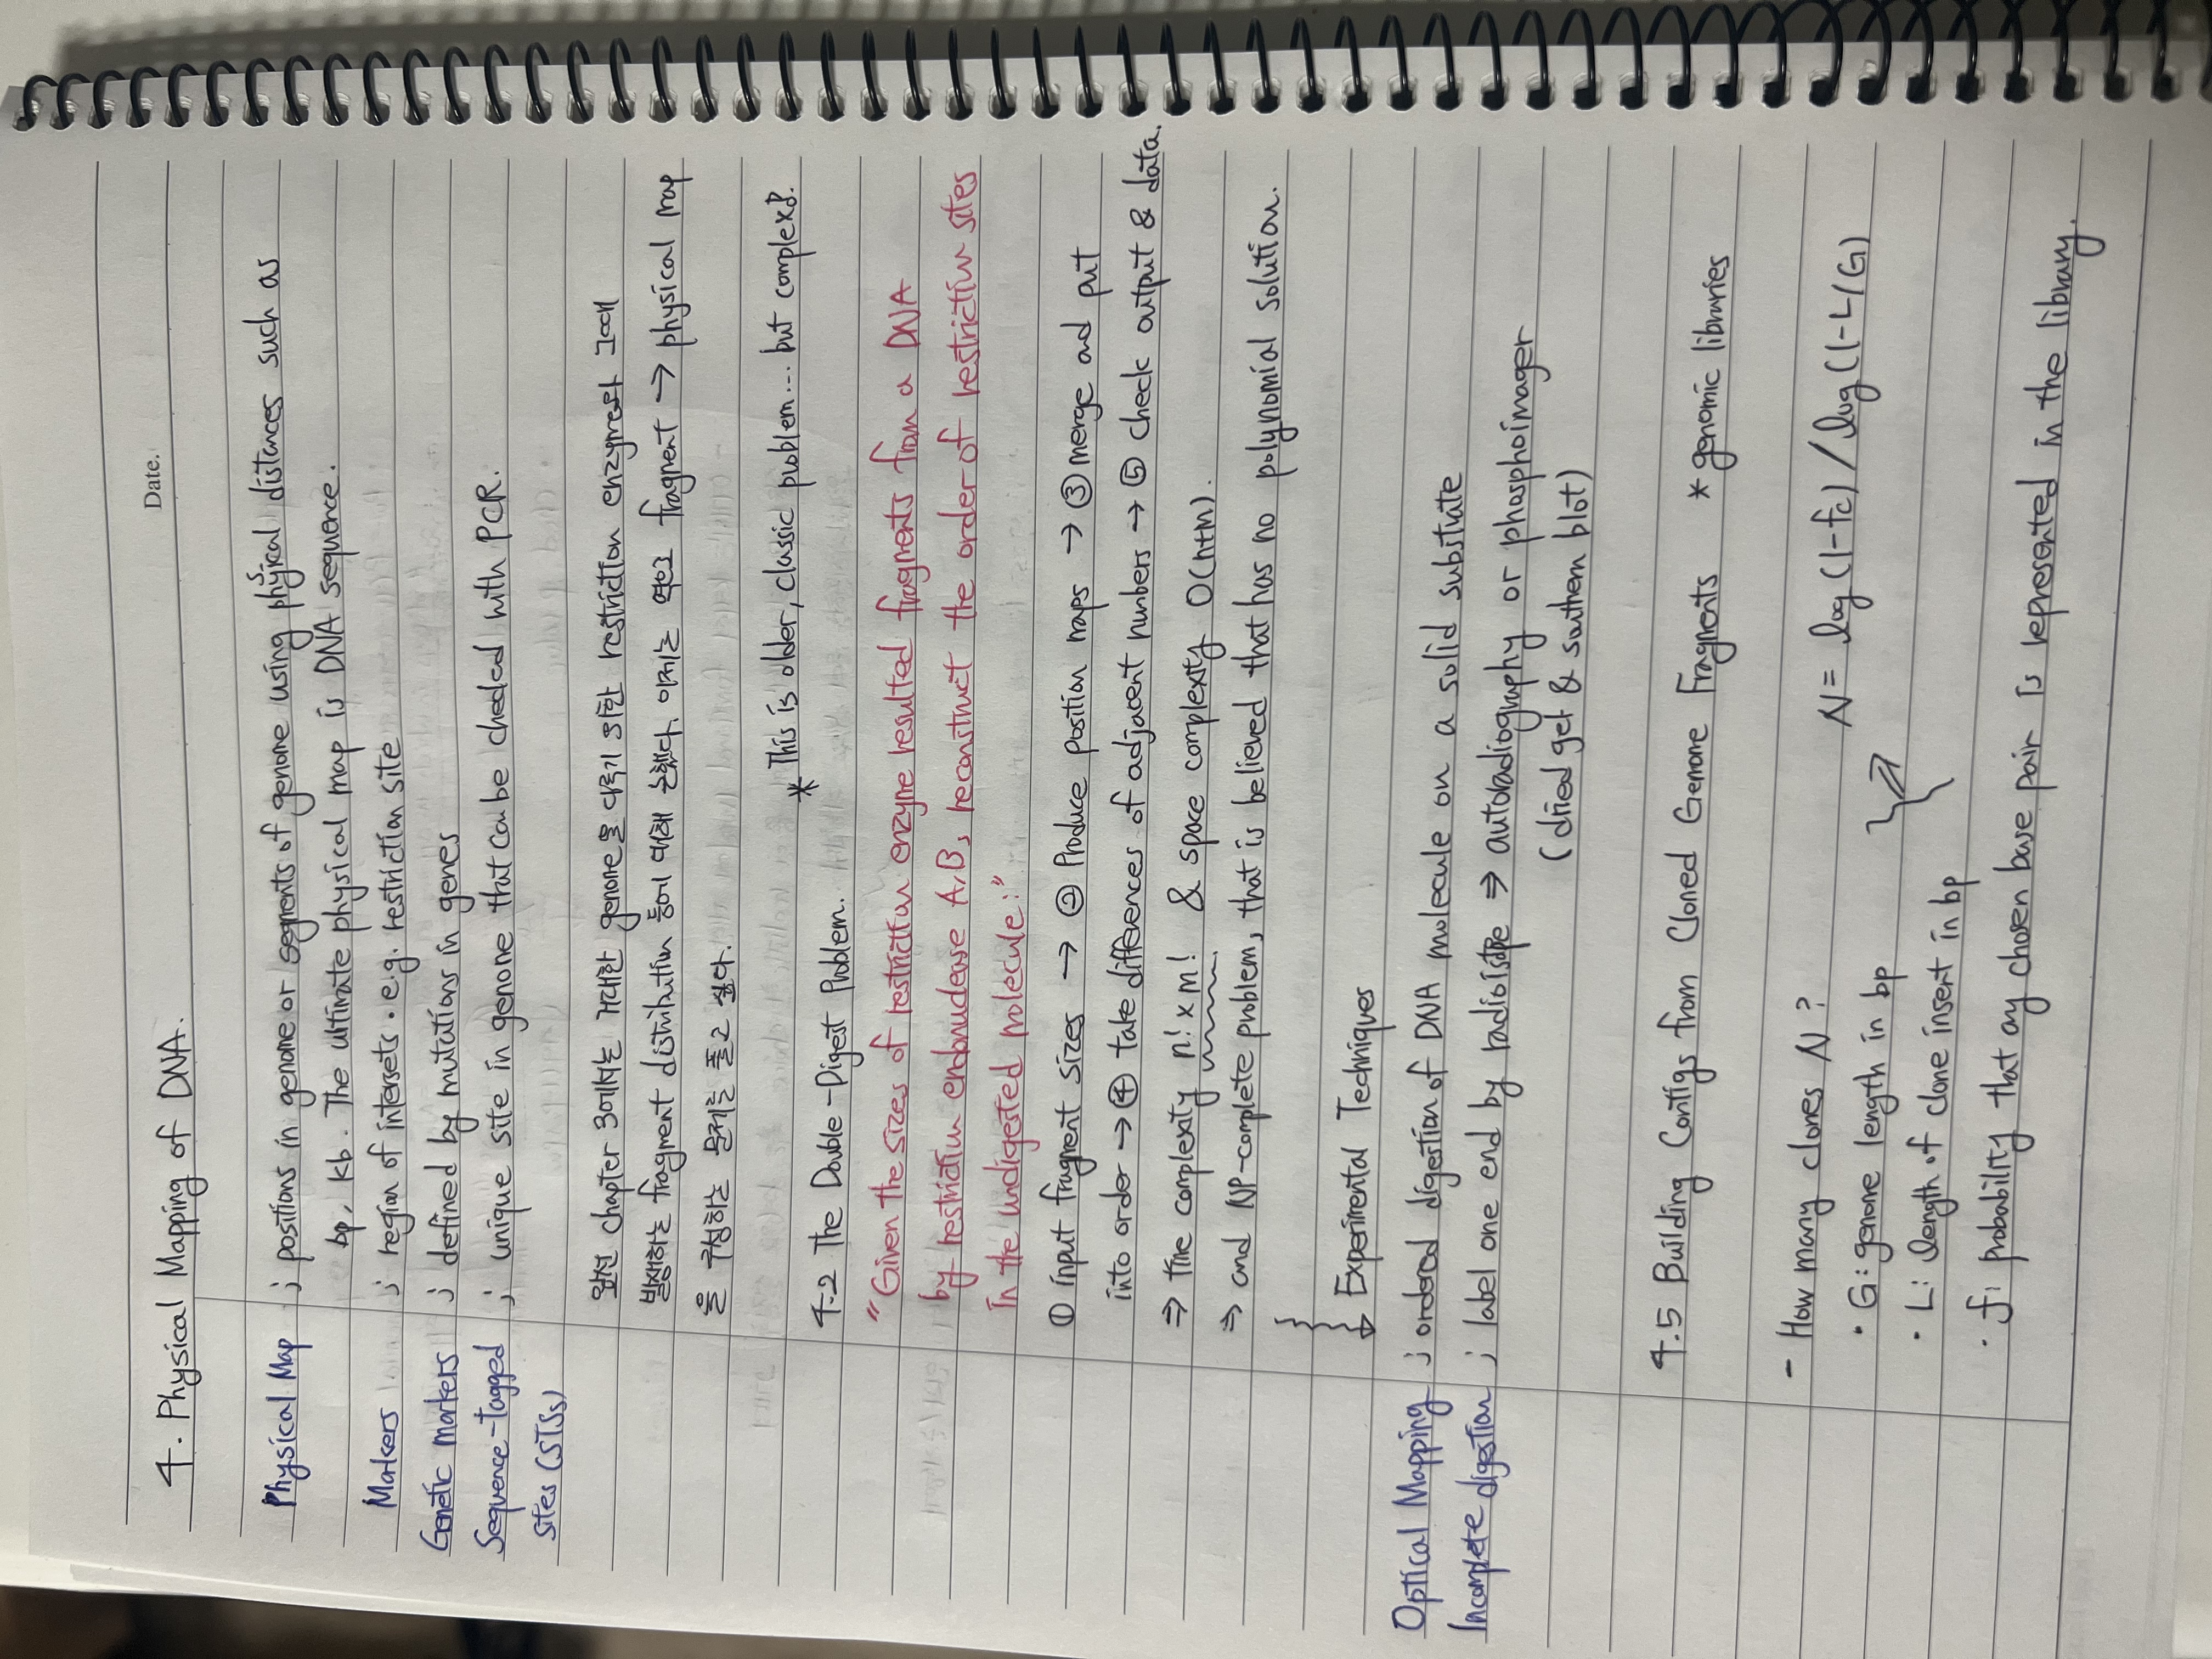 Date.
4. Physical Mapping of DNA.
Physical Map ; positions in genome or segments of genome using physical distances such as
bp, kb. The ultimate physical map is DNA sequence.
Markers ; region of intersets. e.g. restriction site
Genetic markers ; defined by mutations in genes
Sequence-tagged ; unique site in genome that can be checked with PCR.
Sites (STSs)
앞선 chapter 3에서는 거대한 genome을 다루기 위한 restriction enzyme과 그에
발생하는 fragment distribution 등에 대해 논했다. 이제는 역으로 fragment → physical map
을 구성하는 문제를 풀고 싶다.
* This is older, classic problem... but complexd.
4.2 The Double-Digest Problem.
"Given the sizes of restriction enzyme resulted fragments from a DNA
by restriction endonuclease A, B, reconstruct the order of restriction sites
in the undigested molecule."
① input fragment sizes → ② Produce position maps → ③ merge and put
into order → ④ take differences of adjacent numbers → ⑤ check output & data.
⇒ time complexity n! x m! & space complexity O(n+m).
⇒ and NP-complete problem, that is believed that has no polynomial solution.
Experimental Techniques
Optical Mapping ; ordered digestion of DNA molecule on a solid substrate
Incomplete digestion ; label one end by radioistope ⇒ autoradiography or phosphoimager
(dried gel & southern blot)
4.5 Building Contigs from Cloned Genome Fragments * genomic libraries
- How many clones N? N = log(1-fc) / log(1-L/G)
· G: genome length in bp
· L: length of clone insert in bp
· f: probability that any chosen base pair is represented in the library.